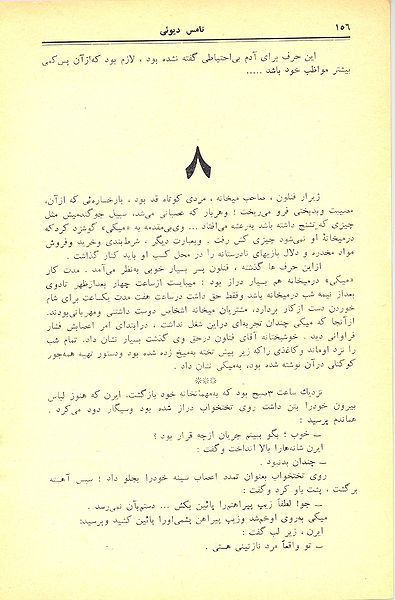 ۱۵۶
تامس دیوئی
این حرف برای آدم بی‌احتیاطی گفته نشده بود ، لازم بود که‌از‌آن پس‌کمی
بیشتر مواظب خود باشد .....
۸
ژیرار فنلون ، صاحب میخانه ، مردی کوتاه قد بود ، با‌رخساره‌ئی که‌از‌آن،
مصیبت و‌بدبختی فرو می‌ریخت ؛ و‌هربار که عصبانی می‌شد، سبیل جو‌گندمیش مثل
چیزی که‌تشنج داشته باشد به‌رعشه می‌افتاد ... وی‌بی‌مقدمه به «میکی» گوشزد کرد‌که
درمیخانهٔ او نمی‌شود چیزی کش رفت . و‌بعبارت دیگر ، شرط‌بندی و‌خرید و‌فروش
مواد مخدره و دلال بازیهای نادرستانه را در محل کسب او باید کنار گذاشت .
از‌این حرف ها گذشته ، فنلون پسر بسیار خوبی به‌نظر می‌آمد . مدت کار
«میکی» درمیخانه هم بسیار دراز بود : میبایست ازساعت چهار بعدازظهر تادوی
بعداز نیمه شب درمیخانه باشد وفقط حق داشت درساعت هفت مدت یکساعت برای شام
خوردن دست ازکار بردارد، مشتریان میخانه اشخاص دوست داشتنی ومهربانی‌بودند.
ازآنجا که میکی چندان تجربه‌ای دراین شغل نداشت ، درابتدای امر اعصابش فشار
فراوانی دید . خوشبختانه آقای فنلون درحق وی گذشت بسیار نشان داد. تمام شب
را نزد اوماند وکاغذی راکه زیر پیش تخته به‌میخ زده شده بود ودستور تهیه همه‌جور
کوکتلی درآن نوشته شده بود، به‌میکی نشان داد .
***
نزدیك ساعت ۳صبح بود که به‌مهمانخانه خود بازگشت. ایرن که هنوز لباس
بیرون خودرا بتن داشت روی تختخواب دراز شده بود وسیگار دود می‌کرد .
هماندم پرسید :
ــ خوب ؛ بگو ببینم جریان ازچه قرار بود ؟
ایرن شانه‌هارا بالا انداخت وگفت :
ــ چندان بدنبود .
روی تختخواب بعنوان تمدد اعصاب سینه خودرا بجلو داد ؛ سپس آهسته
برگشت ، پشت باو کرد وگفت :
ــ جو! لطفاً زیپ پیراهنم‌را پائین بکش ... دستم‌بآن نمی‌رسد .
میکی به‌روی اوخم‌شد وزیپ پیراهن پشمی‌اورا پائین کشید وپرسید:
ایرن ، زیر لب گفت :
ــ تو واقعاً مرد نازنینی هستی .